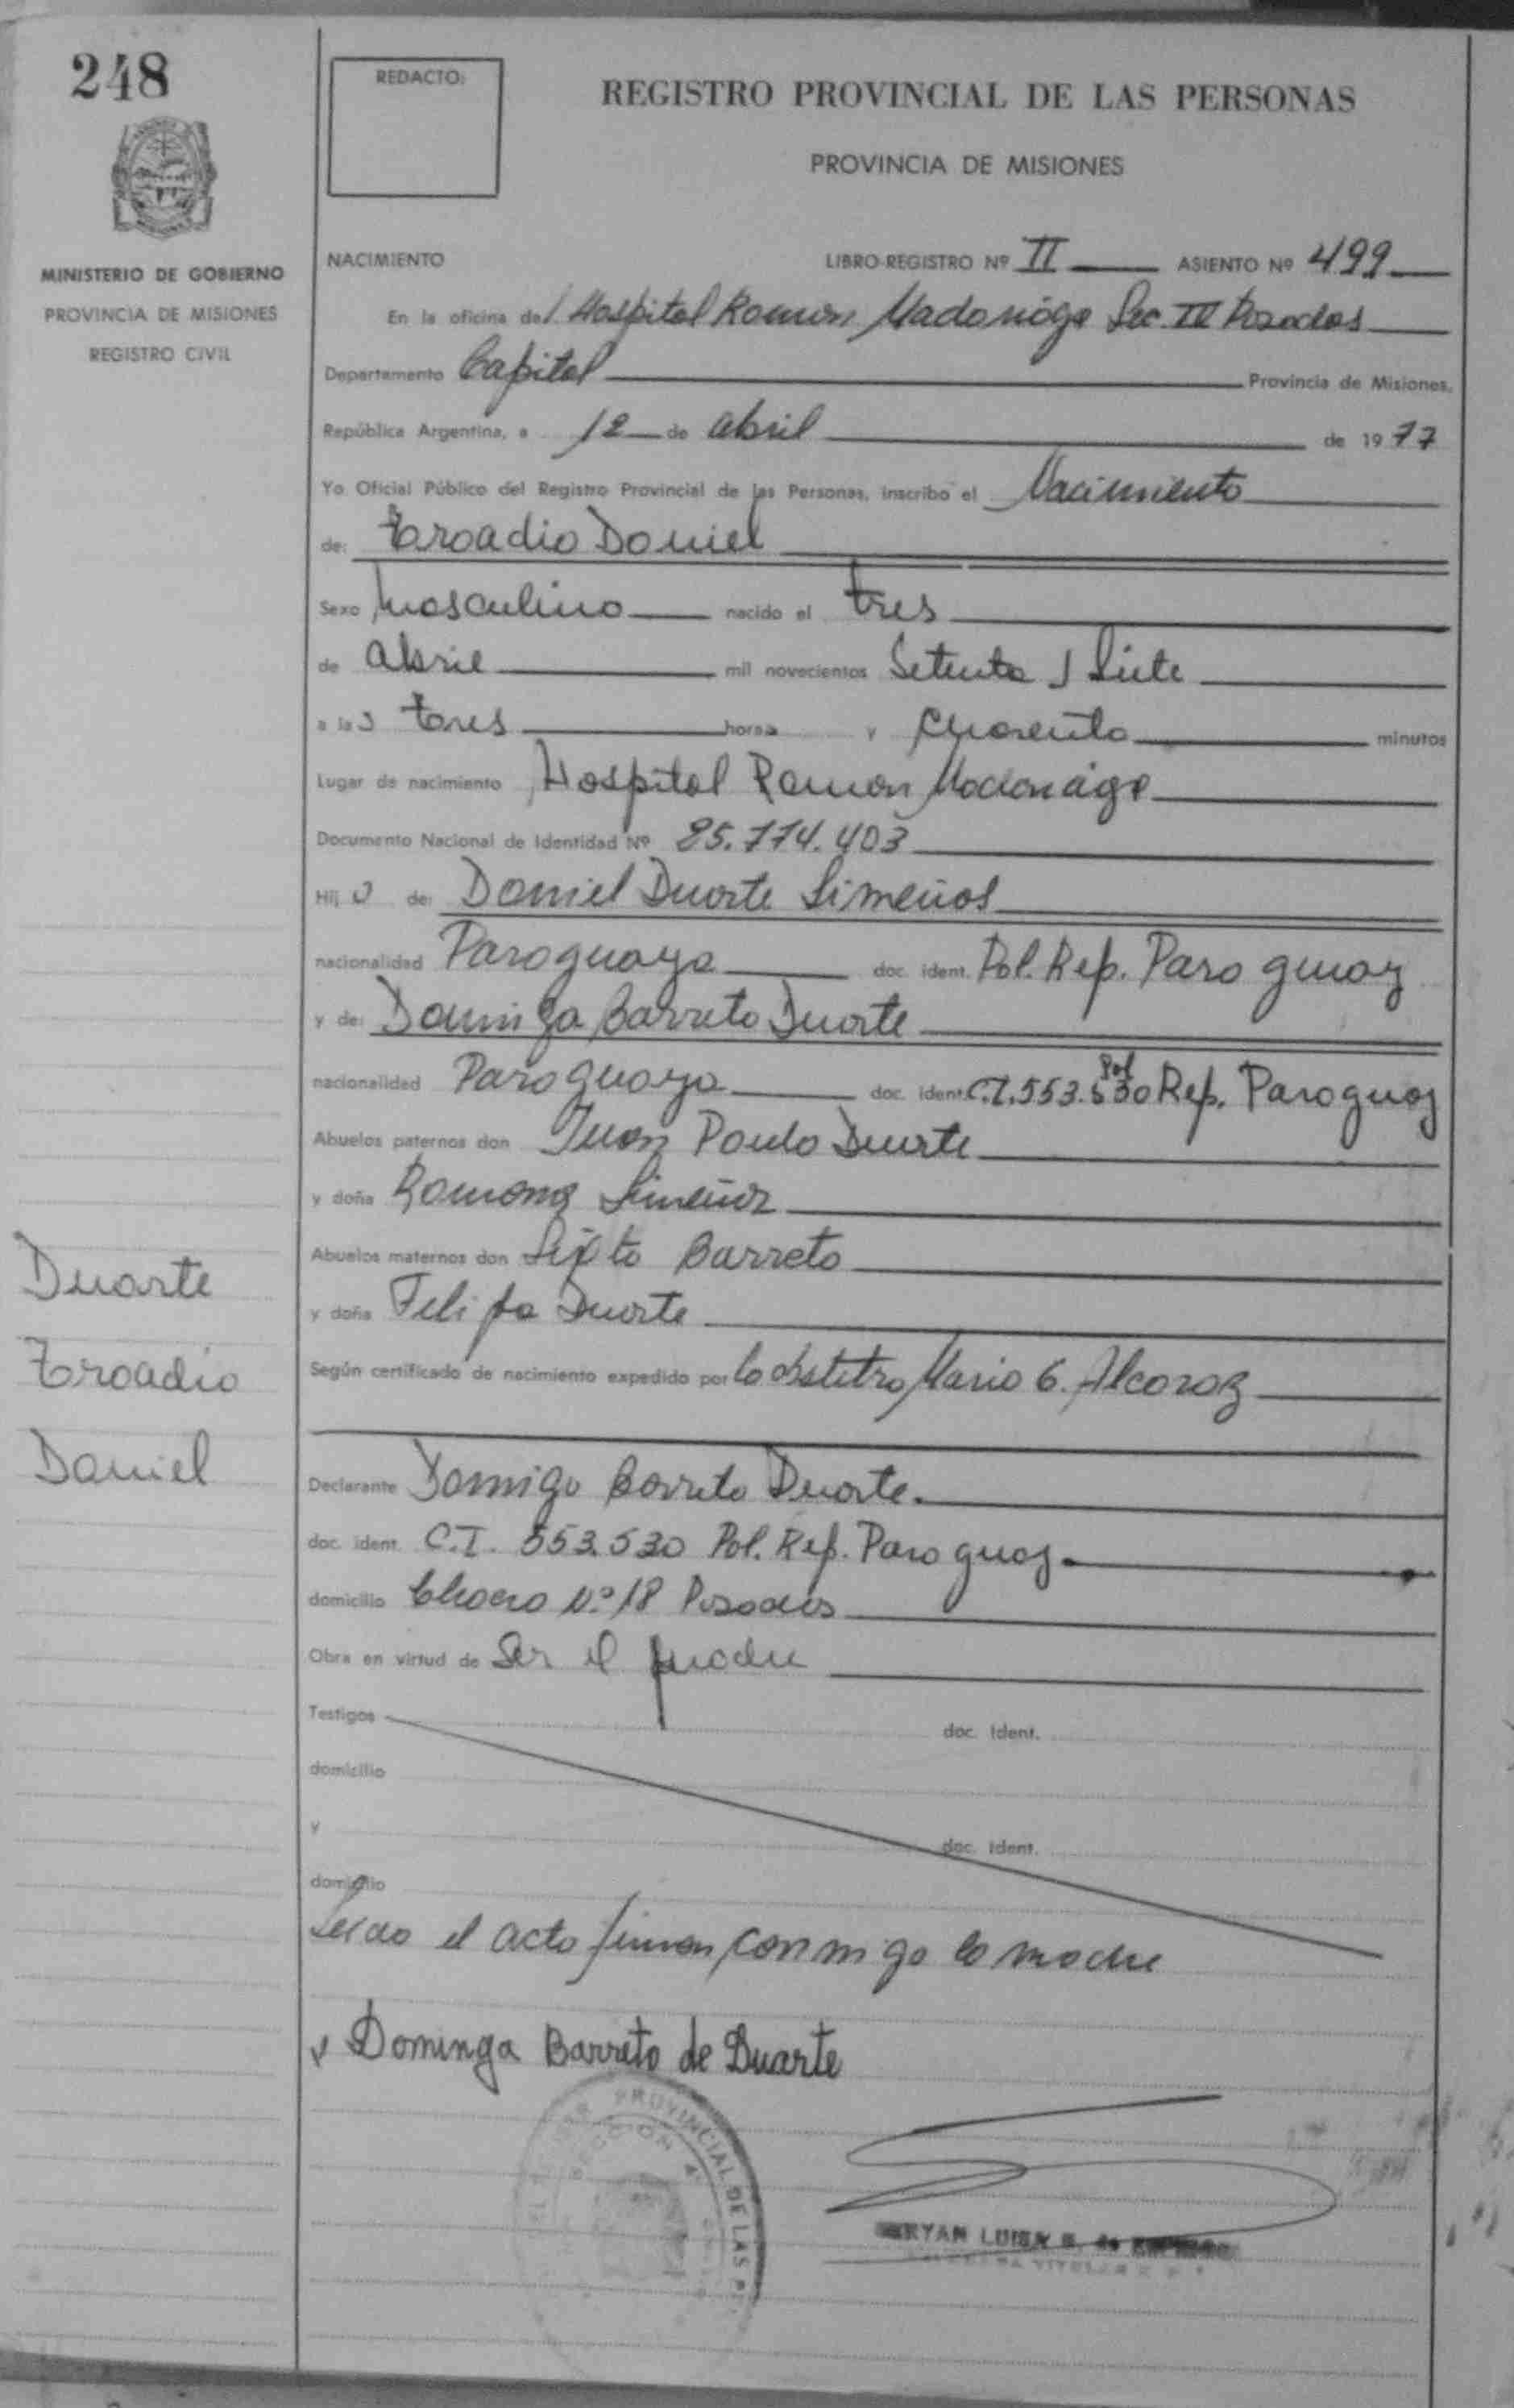 248
REDACTO:
REGISTRO PROVINCIAL DE LAS PERSONAS
PROVINCIA DE MISIONES
MINISTERIO DE GOBIERNO
PROVINCIA DE MISIONES
REGISTRO CIVIL
NACIMIENTO LIBRO-REGISTRO Nº II ASIENTO Nº 499
En la oficina del Hospital Ramon Madariaga Sec. IV Posadas
Departamento Capital Provincia de Misiones,
República Argentina, a 12 de abril de 1977
Yo Oficial Público del Registro Provincial de las Personas, inscribo el Nacimiento
de: Troadio Daniel
Sexo Masculino nacido el tres
de abril mil novecientos Setenta y Siete
a las tres horas y cuarenta minutos
Lugar de nacimiento Hospital Ramon Madariaga
Documento Nacional de Identidad Nº 25.774.403
Hijo de: Daniel Duarte
nacionalidad Paraguaya doc. ident. Pol. Rep. Paraguay
y de: Dominga Barreto Duarte
nacionalidad Paraguaya doc. ident. C.I. 553.530 Pol Rep. Paraguay
Abuelos paternos don Juan Duarte
y doña Ramona
Abuelos maternos don Sixto Barreto
y doña Felipa Duarte
Duarte
Troadio
Daniel
Según certificado de nacimiento expedido por la obstetra Maria G. Alcaraz
Declarante Domiga Barreto Duarte.
doc. ident. C.I. 553.530 Pol. Rep. Paraguay
domicilio Chacra Nº 18 Posadas
Obra en virtud de Ser el madre
Testigos doc. Ident.
domicilio
y doc. Ident.
domicilio
Leido el acta firman conmigo la madre
Dominga Barreto de Duarte
PROVINCIAL DE LAS P
SECCION 4
RYAN LUISA